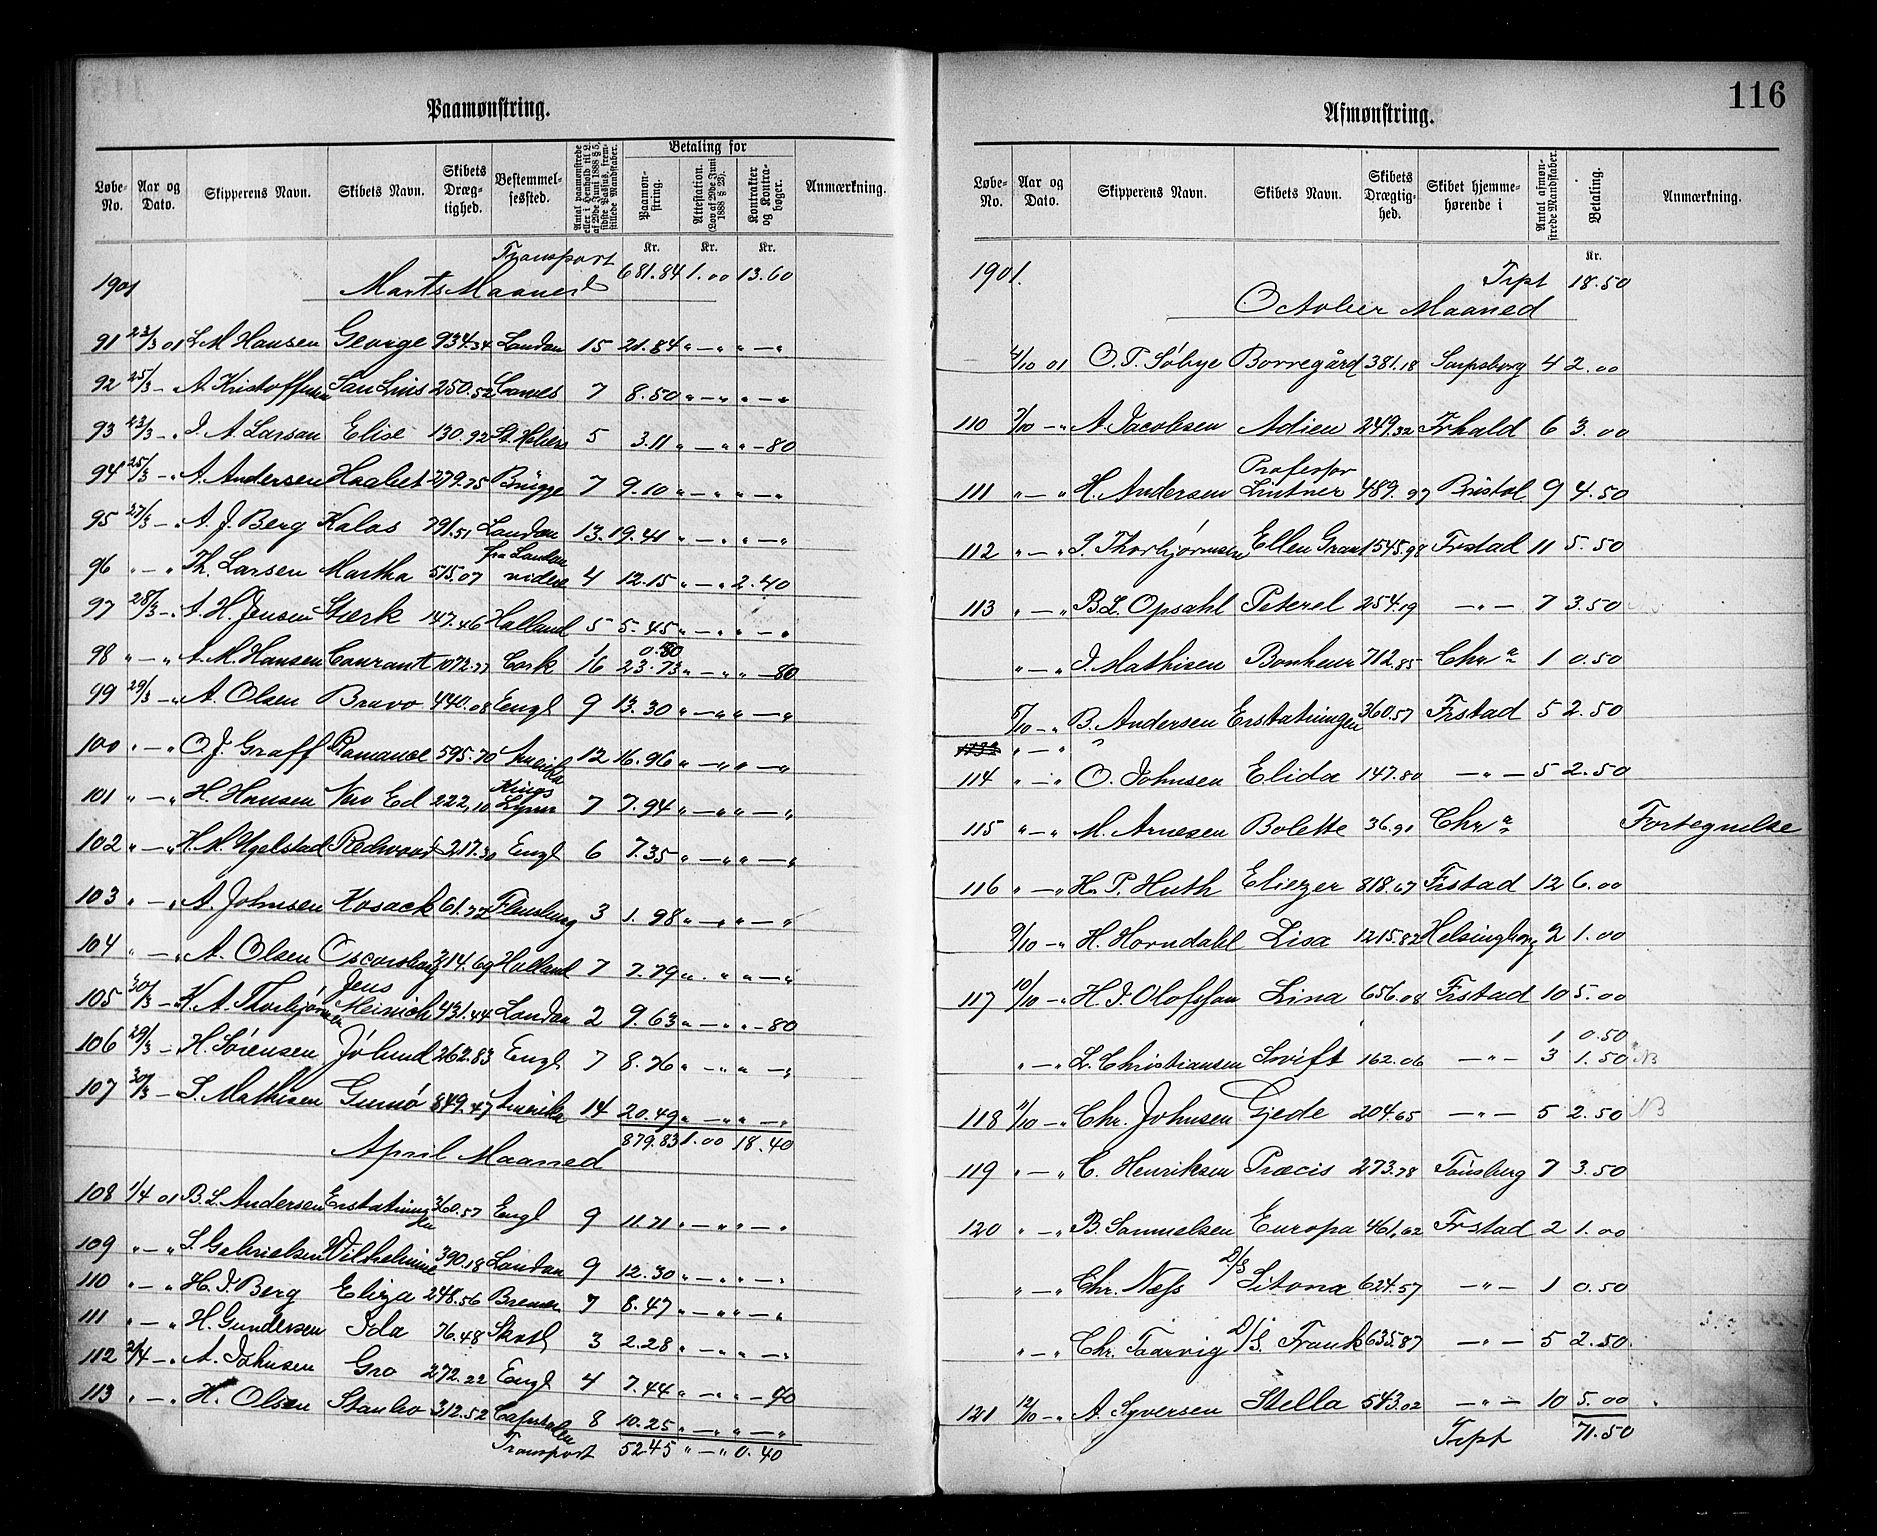 116
Paamønstring.
Løbe-No. | Aar og Dato. | Skipperens Navn. | Skibets Navn. | Skibets Dræg-tighed. | Bestemmel-sessted. | Antal paamønstrede eller i Henhold til 2. af 29de Juni 1888 § 5, sidste Passus, frem-stillede Mandskaber. | Betaling for | Paamøn-string. | Attestation. (Lov af 29de Juni 1888 § 23). | Kontrakter og Kontra-bøger. | Anmærkning.
Kr. | Kr. | Kr.
Transport 681.84 1.00 13.60
1901 Marts Maaned
91 23/3 01 L. M. Hansen George 934.34 London 15 21.84 " — " " — "
92 25/3 - " A. Kristoffersen San Luis 250.52 Cowes 7 8.50 " — " " — "
93 23/3 - " I. A. Larson Elise 130.92 St. Heliers 5 3.11 " — " " — 80
94 25/3 - " A. Andersen Haabet 279.75 Brügge 7 9.10 " — " " — "
95 27/3 - " A. J. Berg Kalos 791.51 London 13 19.41 " — " " — "
fra London
96 " — " Th. Larsen Martha 515.07 videre 4 12.15 " — " 2.40
97 28/3 - " A. H. Jensen Stærk 147.46 Holland 5 5.45 " — " " — "
1 0.80
98 " — " A. M. Hansen Courant 1072.77 Cork 16 23.73 " — " " — 80
99 29/3 — " A. Olsen Bravo 440.08 Engl 9 13.30 " — " " — "
100 " — " O. J. Graff Romance 595.70 Amerika 12 16.96 " — " " — "
Kings
101 " — " H. Hansen Neo Ed 222.10 Lynn 7 7.94 " — " " — "
102 " — " H. M. Ugelstad Redwood 217.30 Engl 6 7.35 " — " " — "
103 " — " A. Johnsen Kosack 61.72 Flensburg 3 1.98 " — " " — "
104 " — " A. Olsen Oscarsborg 314.69 Holland 7 7.79 " — " " — "
Jens
105 30/3 — " K. A. Thorbjørnsen Heinrich 431.44 London 2 9.63 " — " " — 80
106 29/3 — H. Sörensen Jølund 262.83 Engl 7 8.76 " — " " — "
107 30/3 — S. Mathisen Gumø 849.47 Amerika 14 20.49 " — " " — "
879.83 1.00 18.40
April Maaned
108 1/4 01 B. L. Andersen Erstatningen 360.57 Engl 9 11.71 " — " " — "
109 " — " S. Gabrielsen Wilhelmine 390.18 London 9 12.30 " — " " — "
110 " — " H. I. Berg Eliza 248.56 Bremen 7 8.47 " — " " — "
111 " — " H. Gundersen Ida 76.48 Skotl 3 2.28 " — " " — "
112 2/4 — " A. Johnsen Gro 272.22 Engl 4 7.44 " — " " — 40
113 " — " H. Olsen Stanbo 312.52 8 10.25 " — " " — "
Transport 52.45 " — " 0.40
Afmønstring.
Løbe-No. | Aar og Dato. | Skipperens Navn. | Skibets Navn. | Skibets Drægtig-hed. | Skibet hjemme-hørende i | Antal afmøn-strede Mandskaber. | Betaling. | Anmærkning.
Kr.
1901. Trpt 18.50
October Maaned
— 4/10 01 O. T. Søbye Borregård 381.18 Sarpsborg 4 2.00
110 7/10 — " A. Jacobsen Adien 249.32 Frhald 6 3.00
Professor
111 " — " H. Andersen Lintner 489.97 Bristol 9 4.50
112 " — " T. Thorbjørnsen Ellen Grant 1545.98 Frstad 11 5.50
113 " — " B. L. Opsahl Peterel 254.19 — " — 7 3.50
" — " J. Mathisen Bonheur 712.85 Chra 1 0.50
8/10 — " B. Andersen Erstatningen 360.57 Frstad 5 2.50
" — " "
114 " — " O. Johnsen Elida 147.80 — " — 5 2.50
115 " — " M. Arnesen Bolette 36.91 Chra Fortegnelse
116 " — " H. P. Huth Eliezer 818.67 Frstad 12 6.00
9/10 — " H. Horndahl Lisa 1215.82 Helsingborg 2 1.00
117 10/10 — " H. I. Olofsson Lina 656.08 Frstad 10 5.00
1 0.50
" — " L. Christiansen Swift 162.06 — " — 3 1.50 NB
118 11/10 — " Chr. Johnsen Gjede 204.65 — " — 5 2.50 NB
119 " — " C. Henriksen Præcis 273.78 Tønsberg 7 3.50
120 " — " B. Samuelsen Europa 461.62 Frstad 2 1.00
" — " Chr. Næss D/S Sitona 624.57 — " — 1 0.50
" — " Chr. Taarvig D/S. Frank 635.87 — " — 5 2.50
121 12/10 — " A. Syversen Stella 543.02 — " — 10 5.00
Trpt 71.50